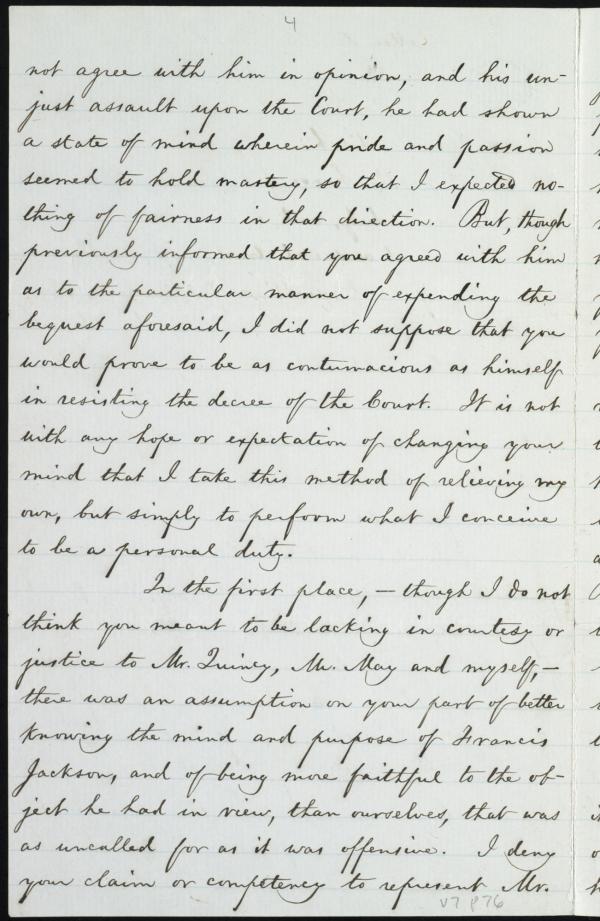 4
not agree with him in opinion, and his un-
just assault upon the Court, he had shown
a state of mind wherein pride and passion
seemed to hold mastery, so that I expected no-
thing of fairness in that direction. But, though
previously informed that you agreed with him
as to the particular manner of expending the
bequest aforesaid, I did not suppose that you
would prove to be as contumacious as himself
in resisting the decree of the Court. It is not
with any hope or expectation of changing your
mind that I take this method of relieving my
own, but simply to perform what I conceive
to be a personal duty.
In the first place, — though I do not
think you meant to be lacking in courtesy or
justice to Mr. Quincy, Mr. May and myself, —
there was an assumption on your part of better
knowing the mind and purpose of Francis
Jackson, and of being more faithful to the ob-
ject he had in view, than ourselves, that was
as uncalled for as it was offensive. I deny
your claim or competency to represent Mr.
V7 p76